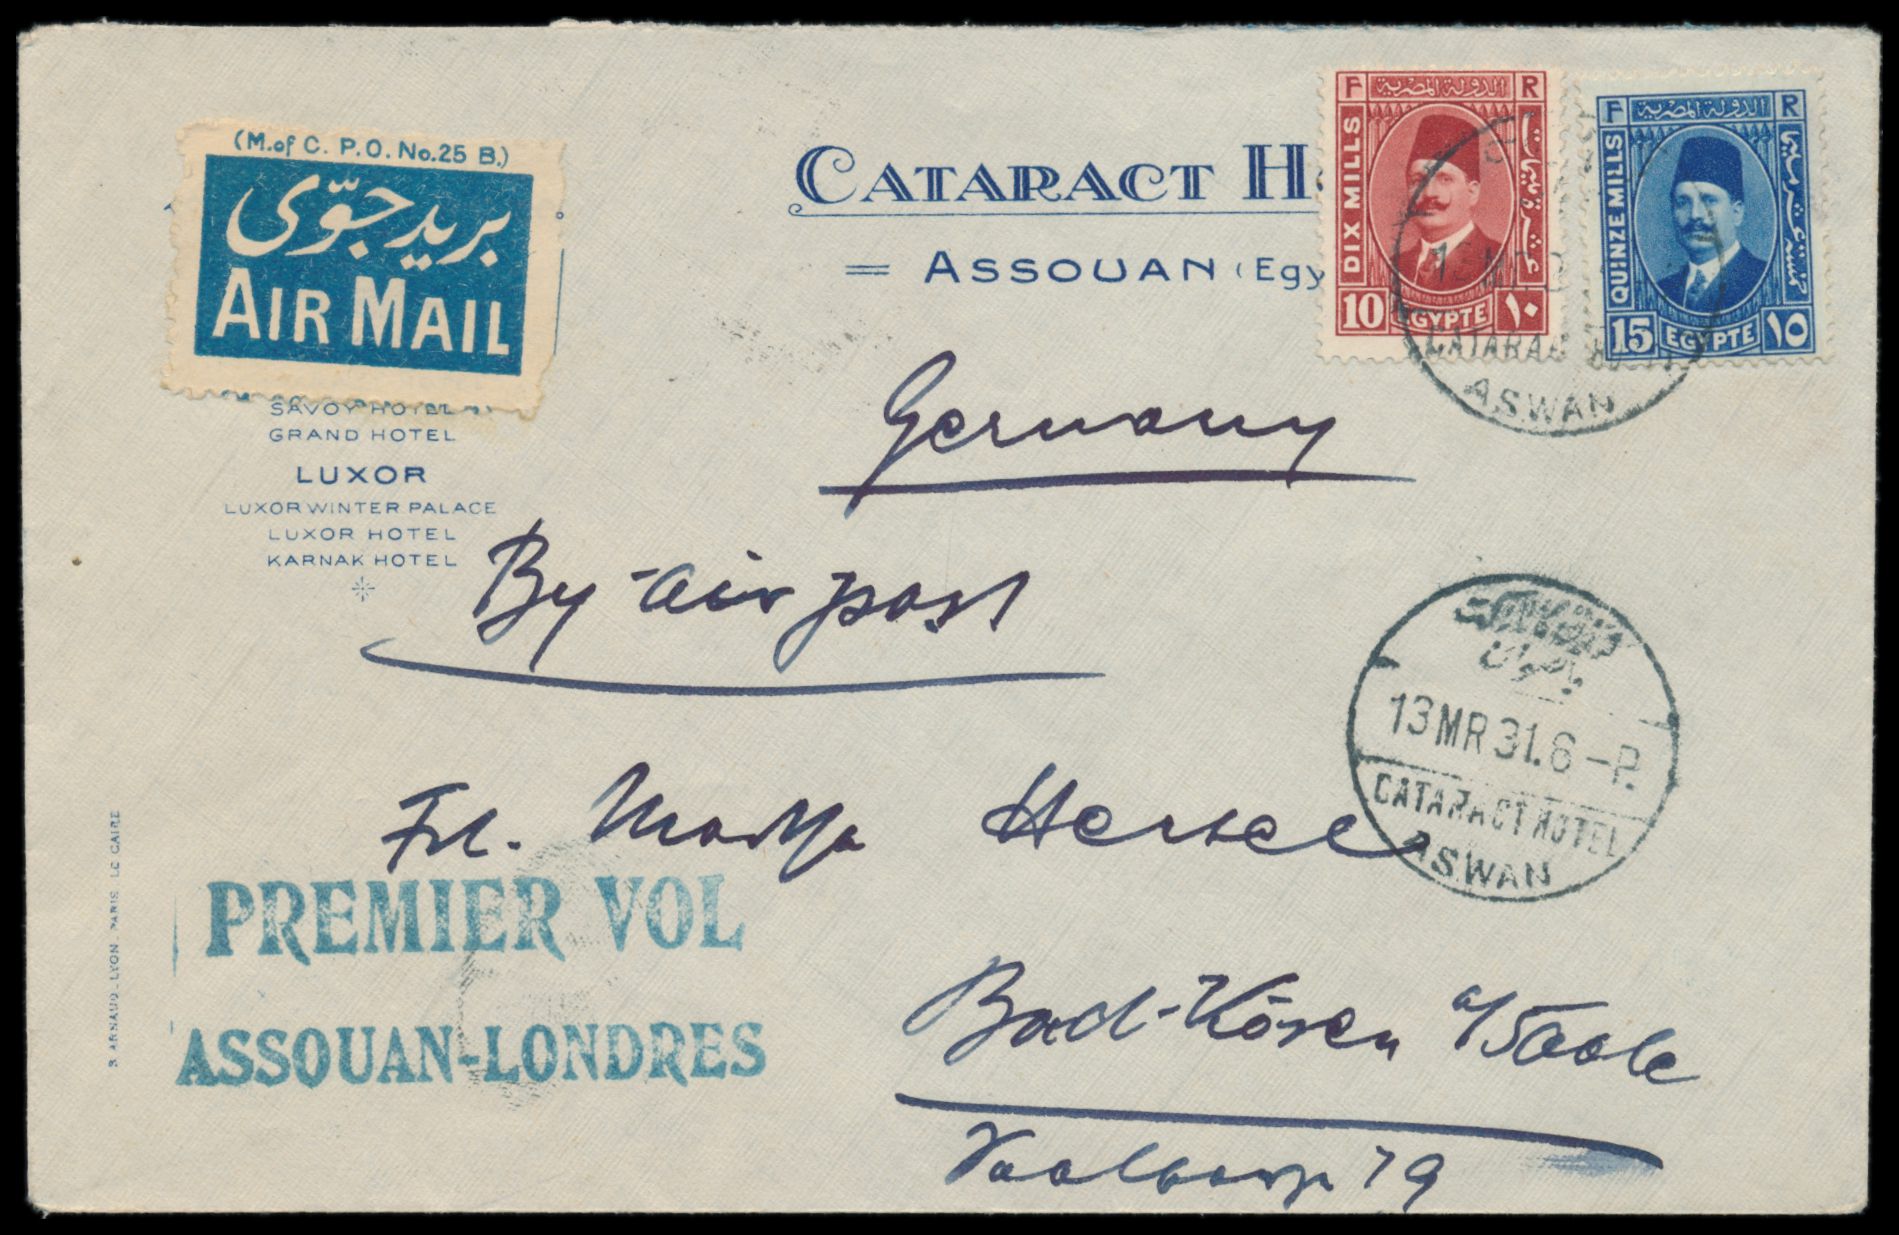 (M. of C. P.O. No. 25 B.)
بريد جوّى
AIR MAIL
CATARACT H
ASSOUAN (Egy
F R
الدولة المصرية
DIX MILLS
عشرة مليمات
10 EGYPTE ١٠
F R
الدولة المصرية
QUINZE MILLS
15 EGYPTE ١٥
CATARAC
ASWAN
SAVOY HOTEL
GRAND HOTEL
LUXOR
LUXOR WINTER PALACE
LUXOR HOTEL
KARNAK HOTEL
Germany
By-air post
13 MR 31. 6-P.
CATARACT HOTEL
ASWAN
Frl.
PREMIER VOL
ASSOUAN-LONDRES
Bad-Kösen a/Saale
19
ARNAUD_LYON_PARIS LE CAIRE